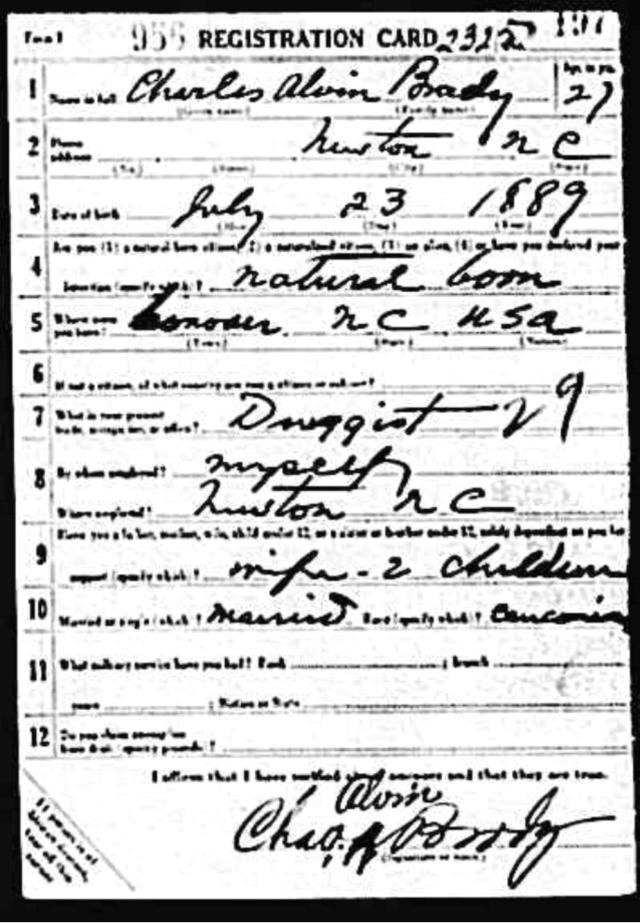 Form 1 956 REGISTRATION CARD 2312 197
1 Name in full Charles Alvin Brady Age, in yrs. 27
(Given name) (Family name)
2 Home address Newton N C
(No.) (Street) (City) (State)
3 Date of birth July 23 1889
(Month) (Day) (Year)
4 Are you (1) a natural born citizen, (2) a naturalized citizen, (3) an alien, (4) or have you declared your
intention (specify which)? natural born
5 Where were you born? Conover N C USA
(Town) (State) (Nation)
6 If not a citizen, of what country are you a citizen or subject?
7 What is your present trade, occupation, or office? Druggist 29
8 By whom employed? myself
Where employed? Newton N C
9 Have you a father, mother, wife, child under 12, or a sister or brother under 12, solely dependent on you for
support (specify which)? wife - 2 children
10 Married or single (which)? Married Race (specify which)? Caucasian
11 What military service have you had? Rank ; branch
years ; Nation or State
12 Do you claim exemption from draft (specify grounds)?
I affirm that I have verified above answers and that they are true.
Alvin
Chas. A Brady
(Signature or mark)